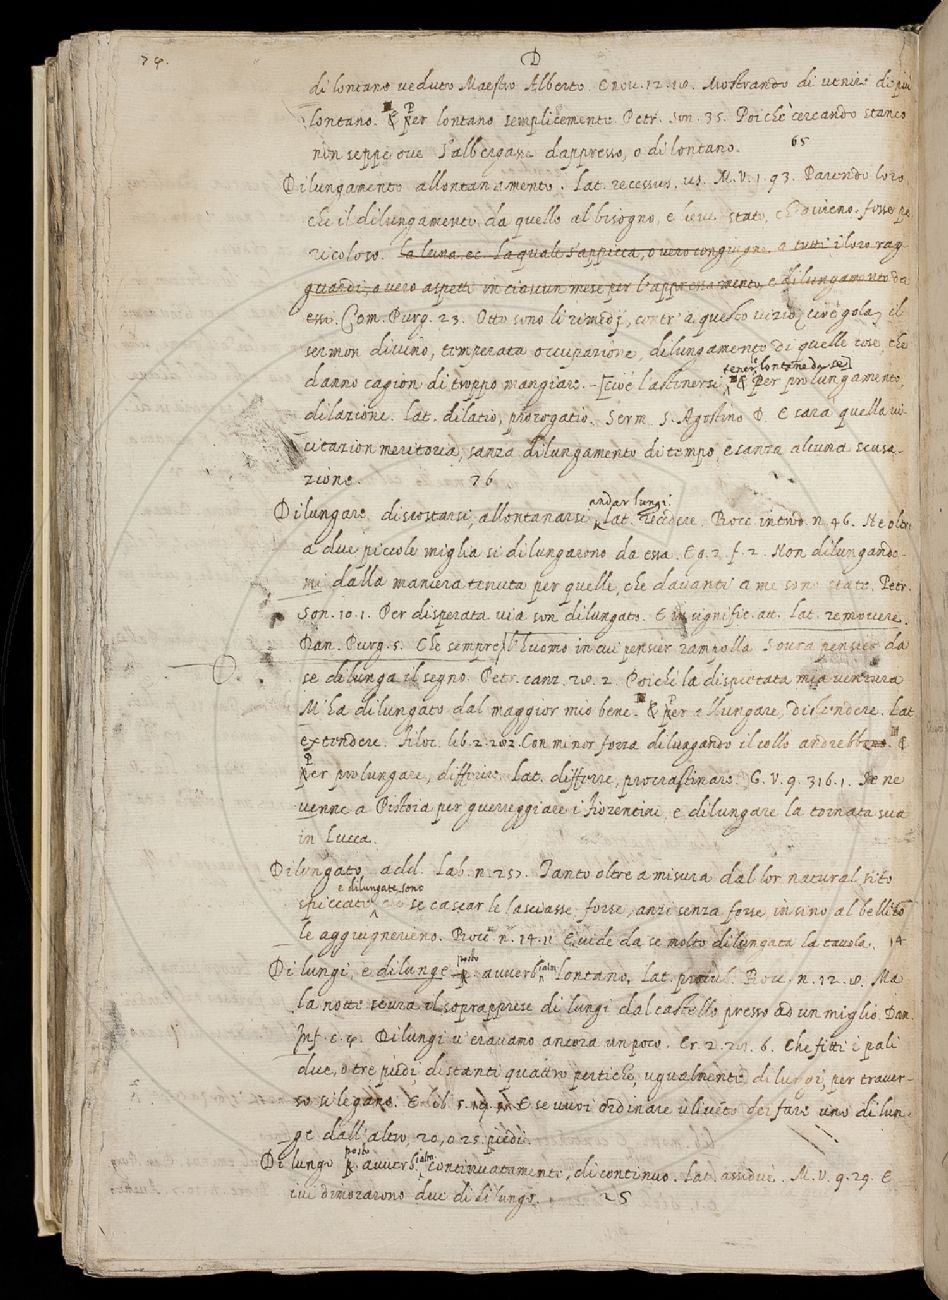 74. D
di lontano veduto Maestro Alberto. E nov. 12. 10. Mostrando di venire di più
lontano. & Per lontano semplicemente. Petr. Son. 35. Poichè cercando stanco
non seppe ove S'albergasse dappresso, o di lontano. 65
Dilungamento allontanamento. Lat. recessus, us. M. V. 1. 93. Parendo loro,
che il dilungamento da quello al bisogno, e fosse pe-
ricoloso. La luna ec. la quale s'appicca, o vero congiugne a tutti i loro rag-
guardi, o vero aspetti in ciascun mese per l'appressamento, e dilungamento da
essa. Com. Purg. 23. Otto sono li rimedj, contr'a questo vizio, cioè gola, il
sermon divino, temperata occupazione, dilungamento di quelle cose, che
danno cagion di troppo mangiare. [cioè l'astinersi tenerle lontane da se] & Per prolungamento,
dilazione. Lat. dilatio, prorogatio. Serm. S. Agostino D. E sarà quella vi-
citazion meritoria, sanza dilungamento di tempo, e sanza alcuna scusa-
zione. 26
Dilungare, discostarsi, allontanarsi andar lungi. Lat. recedere. Bocc. introd. n. 46. Ne oltre
a due piccole miglia si dilungarono da essa. E g. 2. f. 2. Non dilungando-
mi dalla maniera tenuta per quelle, che davanti a me sono state. Petr.
Son. 10. 1. Per disperata via son dilungato. E in signific. att. Lat. removere.
Dan. Purg. 5. Che sempre l'huomo in cui pensier rampolla Sovra pensier da
se dilunga il segno. Petr. canz. 20. 2. Poichè la dispietata mia ventura
M'ha dilungato dal maggior mio bene. & Per allungare, distendere. Lat.
extendere. Filoc. lib. 2. 202. Con minor forza dilungando il collo andrebbe. &
Per prolungare, differire. Lat. differre, procrastinare. G. V. 9. 316. 1. Se ne
venne a Pistoia per guerreggiare i Fiorentini, e dilungare la tornata sua
in Lucca.
Dilungato, add. Lab. n. 257. Tanto oltre a misura dal lor natural sito
spiccate e dilungate sono se cascar le lasciasse forse, anzi senza forse insino al bellico
le aggiugnerieno. Bocc. n. 14. 11. E vide da se molto dilungata la tavola. 14
Di lungi, e dilunge posto avverbialm. lontano. Lat. procul. Bocc. n. 12. 10. Ma
la notte scura il soprapprese di lungi dal castello presso ad un miglio. Dan.
Inf. c. 4. Di lungi v'eravamo ancora un poco. Cr. 2. 6. Che fitti i pali
due, o tre piedi, distanti quattro pertiche, ugualmente di lungi, per traver-
so si legano. E se vuoi ordinare uliveto dei fare uno di lun-
ge dall'altro, 20, o 25. piedi.
Di lungo posto avverbialm. continuatamente, di continuo. Lat. assidue. M. V. 9. 29. E
ivi dimorarono due dì di lungo. 25